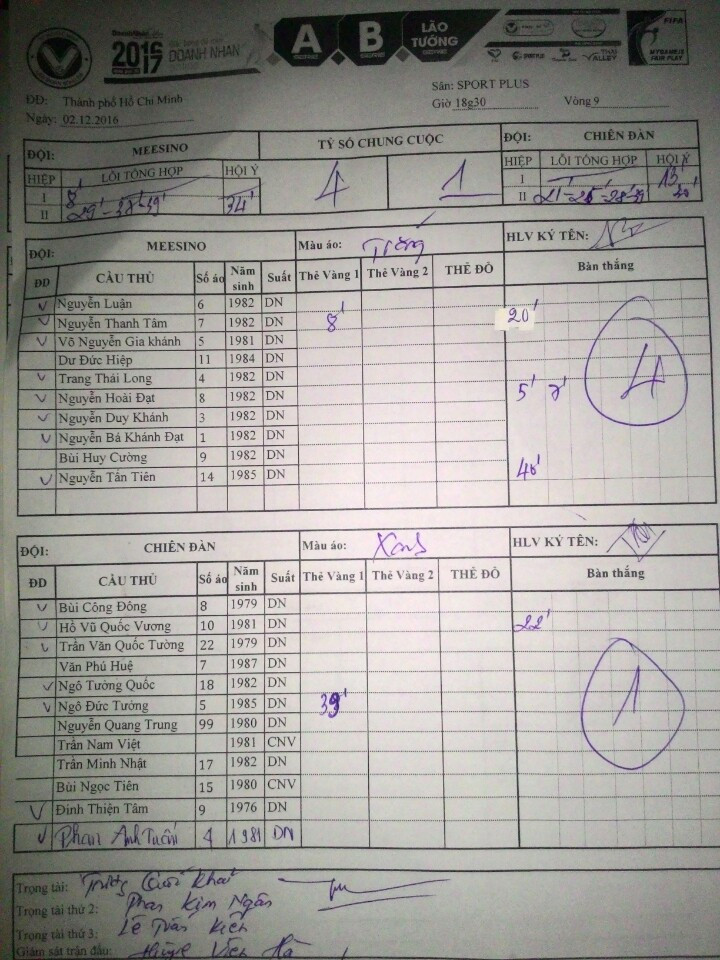 2016 DOANH NHAN A B LÃO TƯỚNG FIFA
2017
VALLEY MY GAME IS FAIR PLAY
ĐĐ: Thành phố Hồ Chí Minh Sân: SPORT PLUS
Ngày: 02.12.2016 Giờ 18g30 Vòng 9
ĐỘI: MEESINO TỶ SỐ CHUNG CUỘC ĐỘI: CHIẾN ĐÀN
HIỆP LỖI TỔNG HỢP HỘI Ý 4 1 HIỆP LỖI TỔNG HỢP HỘI Ý
I 8' I 13'
II 29' - 38' - 39' 34' II
ĐỘI: MEESINO Màu áo: Trắng HLV KÝ TÊN:
ĐD CẦU THỦ Số áo Năm sinh Suất Thẻ Vàng 1 Thẻ Vàng 2 THẺ ĐỎ Bàn thắng
Nguyễn Luận 6 1982 DN
Nguyễn Thanh Tâm 7 1982 DN 8' 20'
Võ Nguyễn Gia khánh 5 1981 DN
Dư Đức Hiệp 11 1984 DN 4
Trang Thái Long 4 1982 DN
Nguyễn Hoài Đạt 8 1982 DN 5' 7'
Nguyễn Duy Khánh 3 1982 DN
Nguyễn Bá Khánh Đạt 1 1982 DN
Bùi Huy Cường 9 1982 DN
Nguyễn Tấn Tiên 14 1985 DN 40'
ĐỘI: CHIẾN ĐÀN Màu áo: Xanh HLV KÝ TÊN:
ĐD CẦU THỦ Số áo Năm sinh Suất Thẻ Vàng 1 Thẻ Vàng 2 THẺ ĐỎ Bàn thắng
Bùi Công Đông 8 1979 DN
Hồ Vũ Quốc Vương 10 1981 DN 22'
Trần Văn Quốc Tường 22 1979 DN
Văn Phú Huệ 7 1987 DN
Ngô Tường Quốc 18 1982 DN
Ngô Đức Tưởng 5 1985 DN 39' 1
Nguyễn Quang Trung 99 1980 DN
Trần Nam Việt 1981 CNV
Trần Minh Nhật 17 1982 DN
Bùi Ngọc Tiên 15 1980 CNV
Đinh Thiện Tâm 9 1976 DN
Phan Anh Tuấn 4 1981 DN
Trọng tài: Trương Quốc Khải
Trọng tài thứ 2: Phan Kim Ngân
Trọng tài thứ 3: Lê Trần Kiên
Giám sát trận đấu: